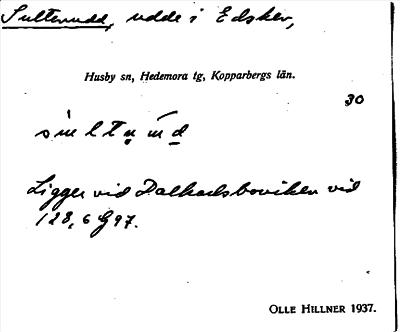 Sultenudd, udde i Edsken,
Husby sn, Hedemora tg, Kopparbergs län.
30
Ligger vid Dalkarlsboviken vid
128,6 G 97.
OLLE HILLNER 1937.